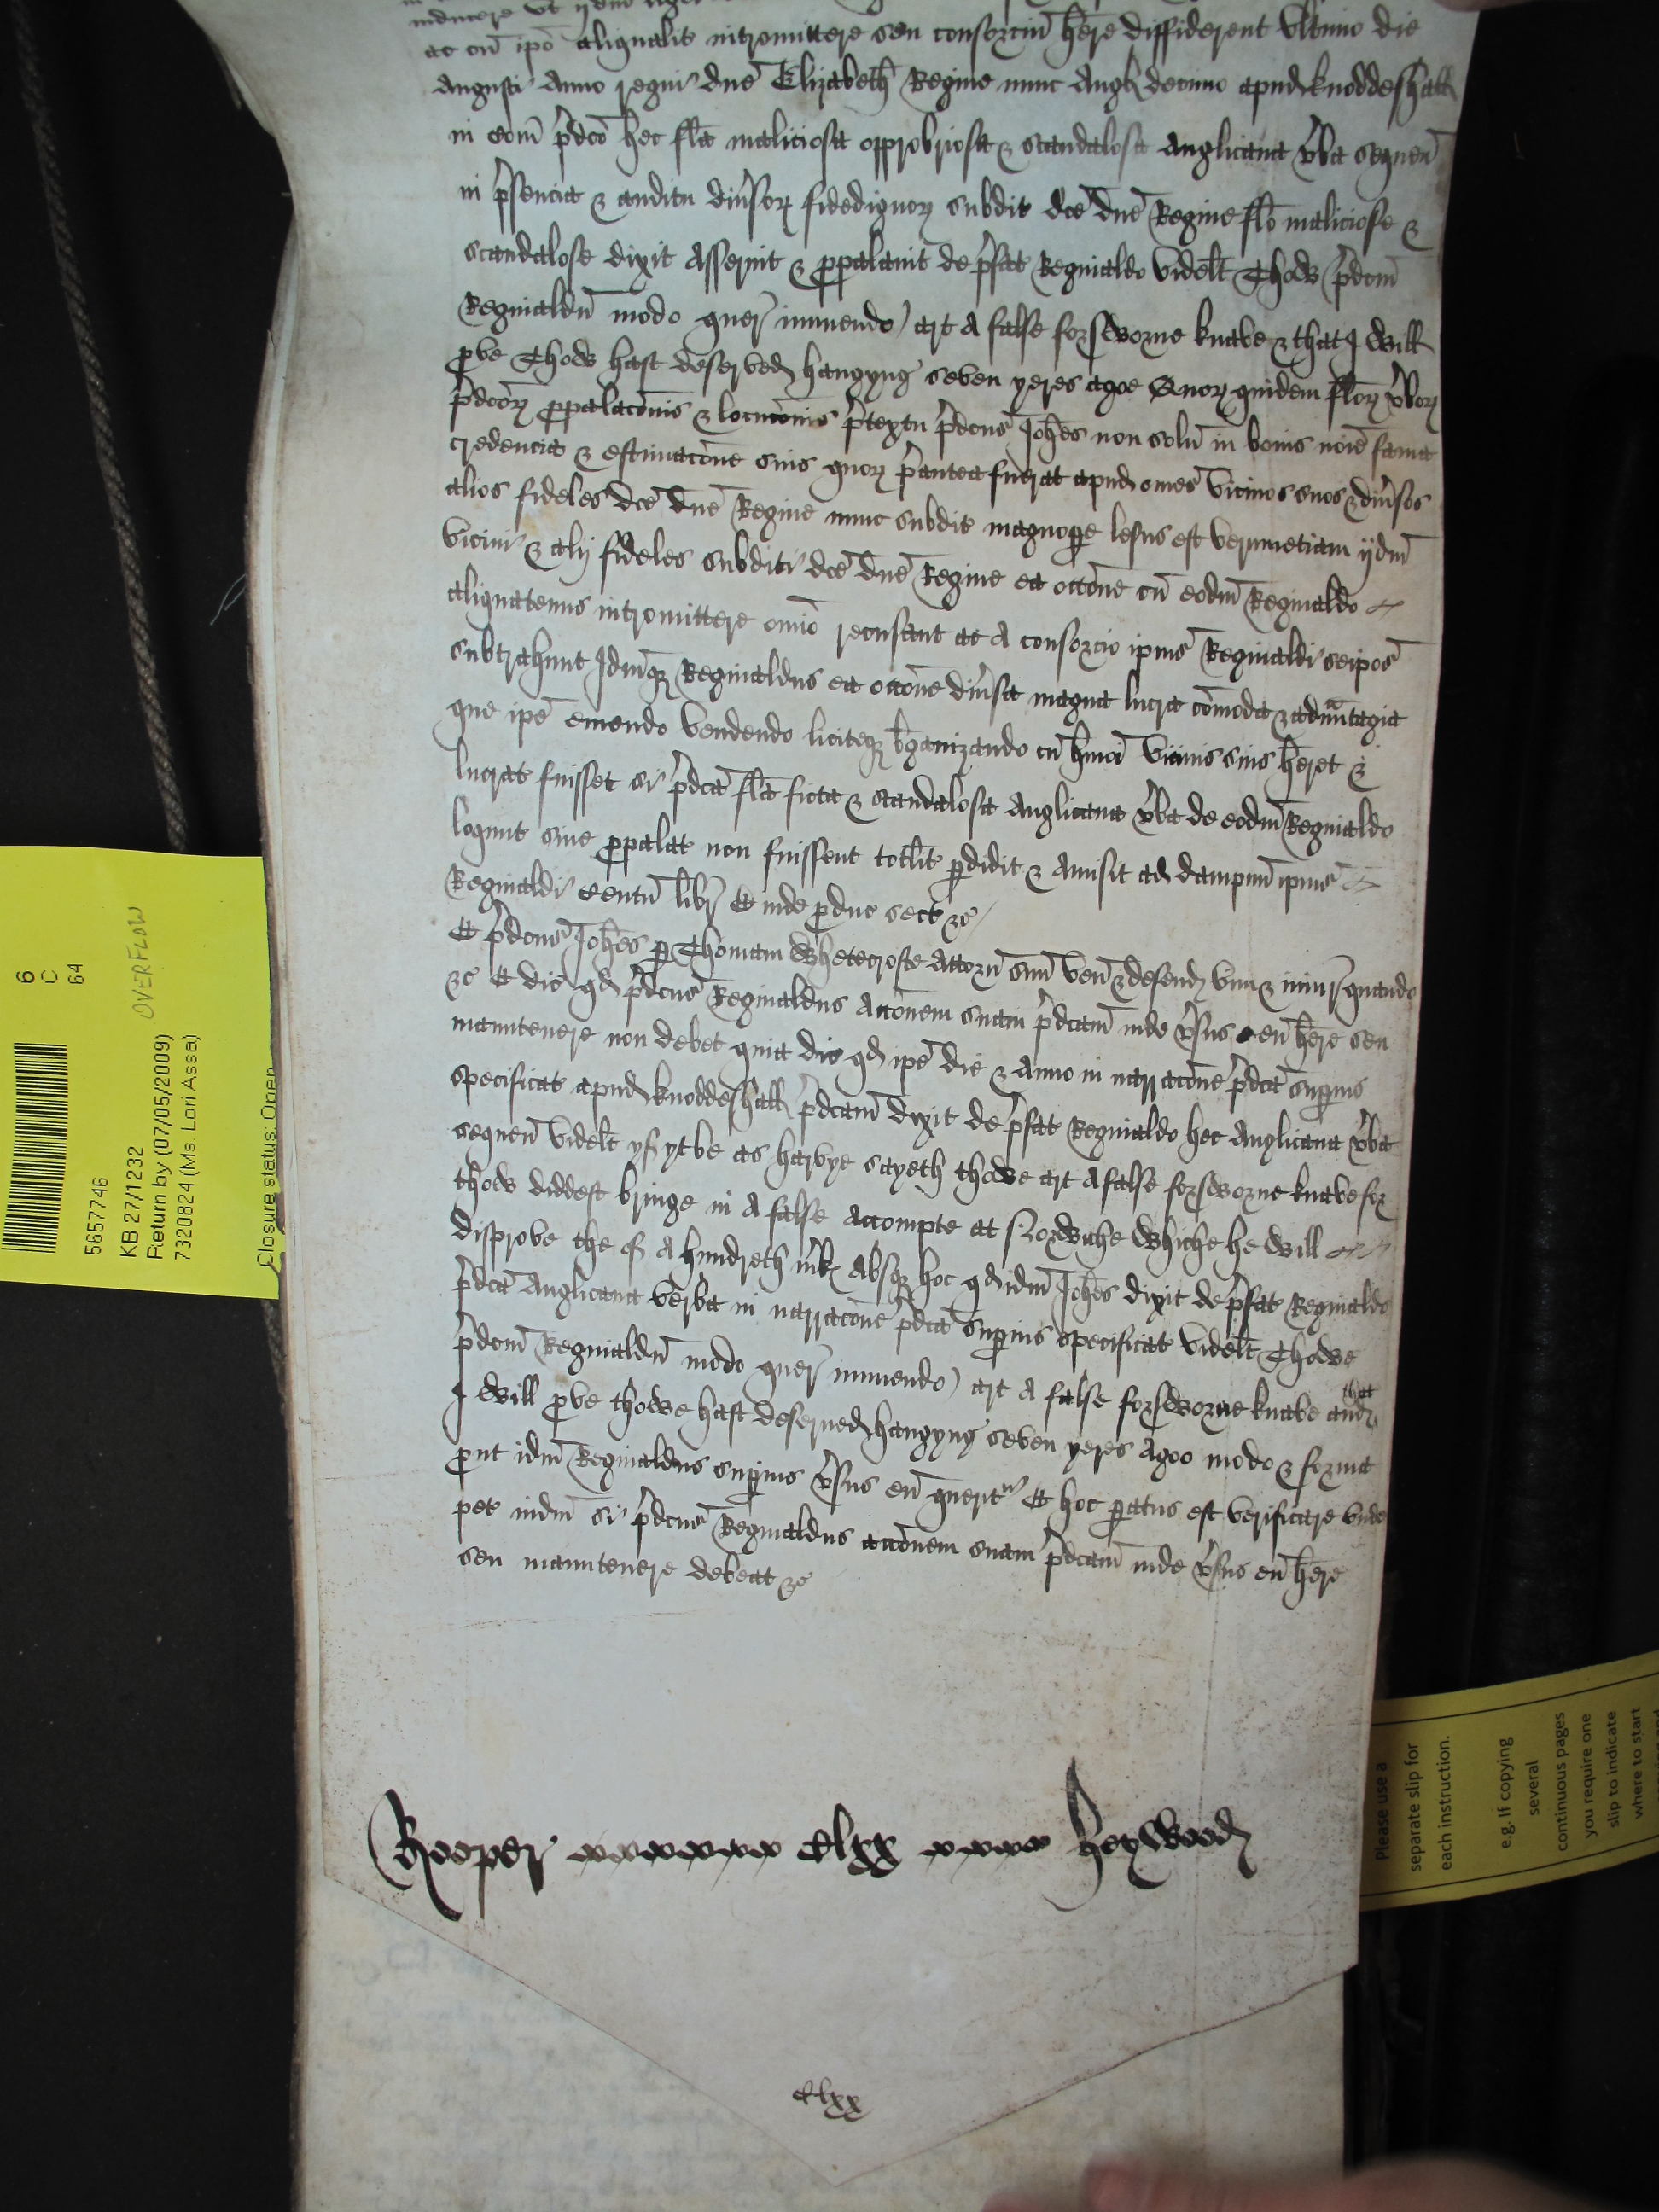 ac cū ipō aliqualit intromittere seu consorciū hēre diffiderent Ultimo die
Augusti Anno regni dnē Elizabeth Regine nunc Angl decimo apud Knoddeshall
in Com p̄dco hec fl̄a maliciosa opprobriosa & scandalosa Anglicana v̄ba sequeñ
in p̄sencia & auditu div̄sorꝫ fidedignorꝫ subdit dcē dnē Regine fl̄o maliciose &
scandalose dixit Asseruit & ꝓpalavit de p̄fat Reginaldo videlt Thow (p̄dcm̄
Reginaldū modo quer̄ innuendo) art A false forsworne knave & that I will
ꝓve Thow hast deserved hangyng seven yeres agoe Quorꝫ quidem fl̄orꝫ v̄borꝫ
p̄dcōrꝫ ꝓpalacōnis & locucōnis p̄textu p̄dcus Johēs non solū in bonis noīe fama
credencia & estimacōne suis quorꝫ p̄antea fuerat apud om̄es vicinos suos & div̄sos
alios fideles dcē dnē Regine nunc subdit magnoꝑe lesus est verumetiam ijdm̄
vicini & alij fideles subditi dcē dnē Regine ea occōne cū eodm̄ Reginaldo
aliquatenus intromittere om̄io recusant ac A consorcio ipius Reginaldi seipos
subtrahunt Idmqꝫ Reginaldus ea occōne div̄sa magna lucra cōmoda & advantagia
que ipē emendo vendendo liciteqꝫ b̄ganizando cū hmōi vicinis suis hēret &
lucrat fuisset si p̄dca fl̄a ficta & scandalosa Anglicana v̄ba de eodm̄ Reginaldo
loquut sive ꝓpalat non fuissent totalit ꝑdidit & Amisit ad dampnū ipius
Reginaldi Centū libr̄ Et inde ꝓduc sect &c
Et p̄dcus Johēs ꝑ Thomam Whetecrofte Attorn̄ suū ven̄ & defend vim & iniur̄ quando
&c Et dic qd p̄dcus Reginaldus Accōnem suam p̄dcam inde v̄sus eū hēre seu
manutenere non debet quia dic qd ipē die & Anno in narracōne p̄dca suꝑius
specificat apud Knoddeshall p̄dcam dixit de p̄fat Reginaldo hec Anglicana v̄ba
sequen̄ videlt yf yt be as harvye sayeth thowe art A false forsworne knave for
thow diddest bringe in A false Accompte at Norwiche whiche he will
disprove the of A hundreth m̄k Absqꝫ hoc qd idm̄ Johēs dixit de p̄fat Reginaldo
p̄dca Anglicana verba in narracōne p̄dca suꝑius specificat videlt Thowe
p̄dcm̄ Reginaldū modo quer̄ innuendo) art A false forsworne knave and that
I will ꝓve thowe hast deserued hangyng seven yeres Agoo modo & forma
ꝓut idm̄ Reginaldus suꝑius v̄sus eū querit Et hoc ꝑatus est verificare vnde
pet iudm̄ si p̄dcus Reginaldus accōnem suam p̄dcam inde v̄sus eū hēre
seu manutenere debeat &c
Keeper Clxx Heywood
Clxx
6
C
64
OVERFLOW
5657746
KB 27/1232
Return by (07/05/2009)
7320824 (Ms. Lori Assa)
Closure status: Open
Please use a
separate slip for
each instruction.
e.g. If copying
several
continuous pages
you require one
slip to indicate
where to start